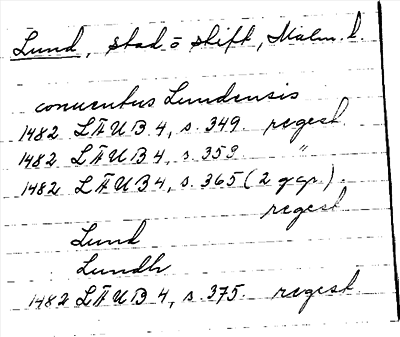 Lund, stad o stift, Malm. l.
conventus Lundensis
1482 LÄUB 4, s. 349. regest
1482 LÄUB 4, s. 353. "
1482 LÄUB 4, s. 365 (2 ggr).
regest
Lund
Lundh
1482 LÄUB 4, s. 375. regest